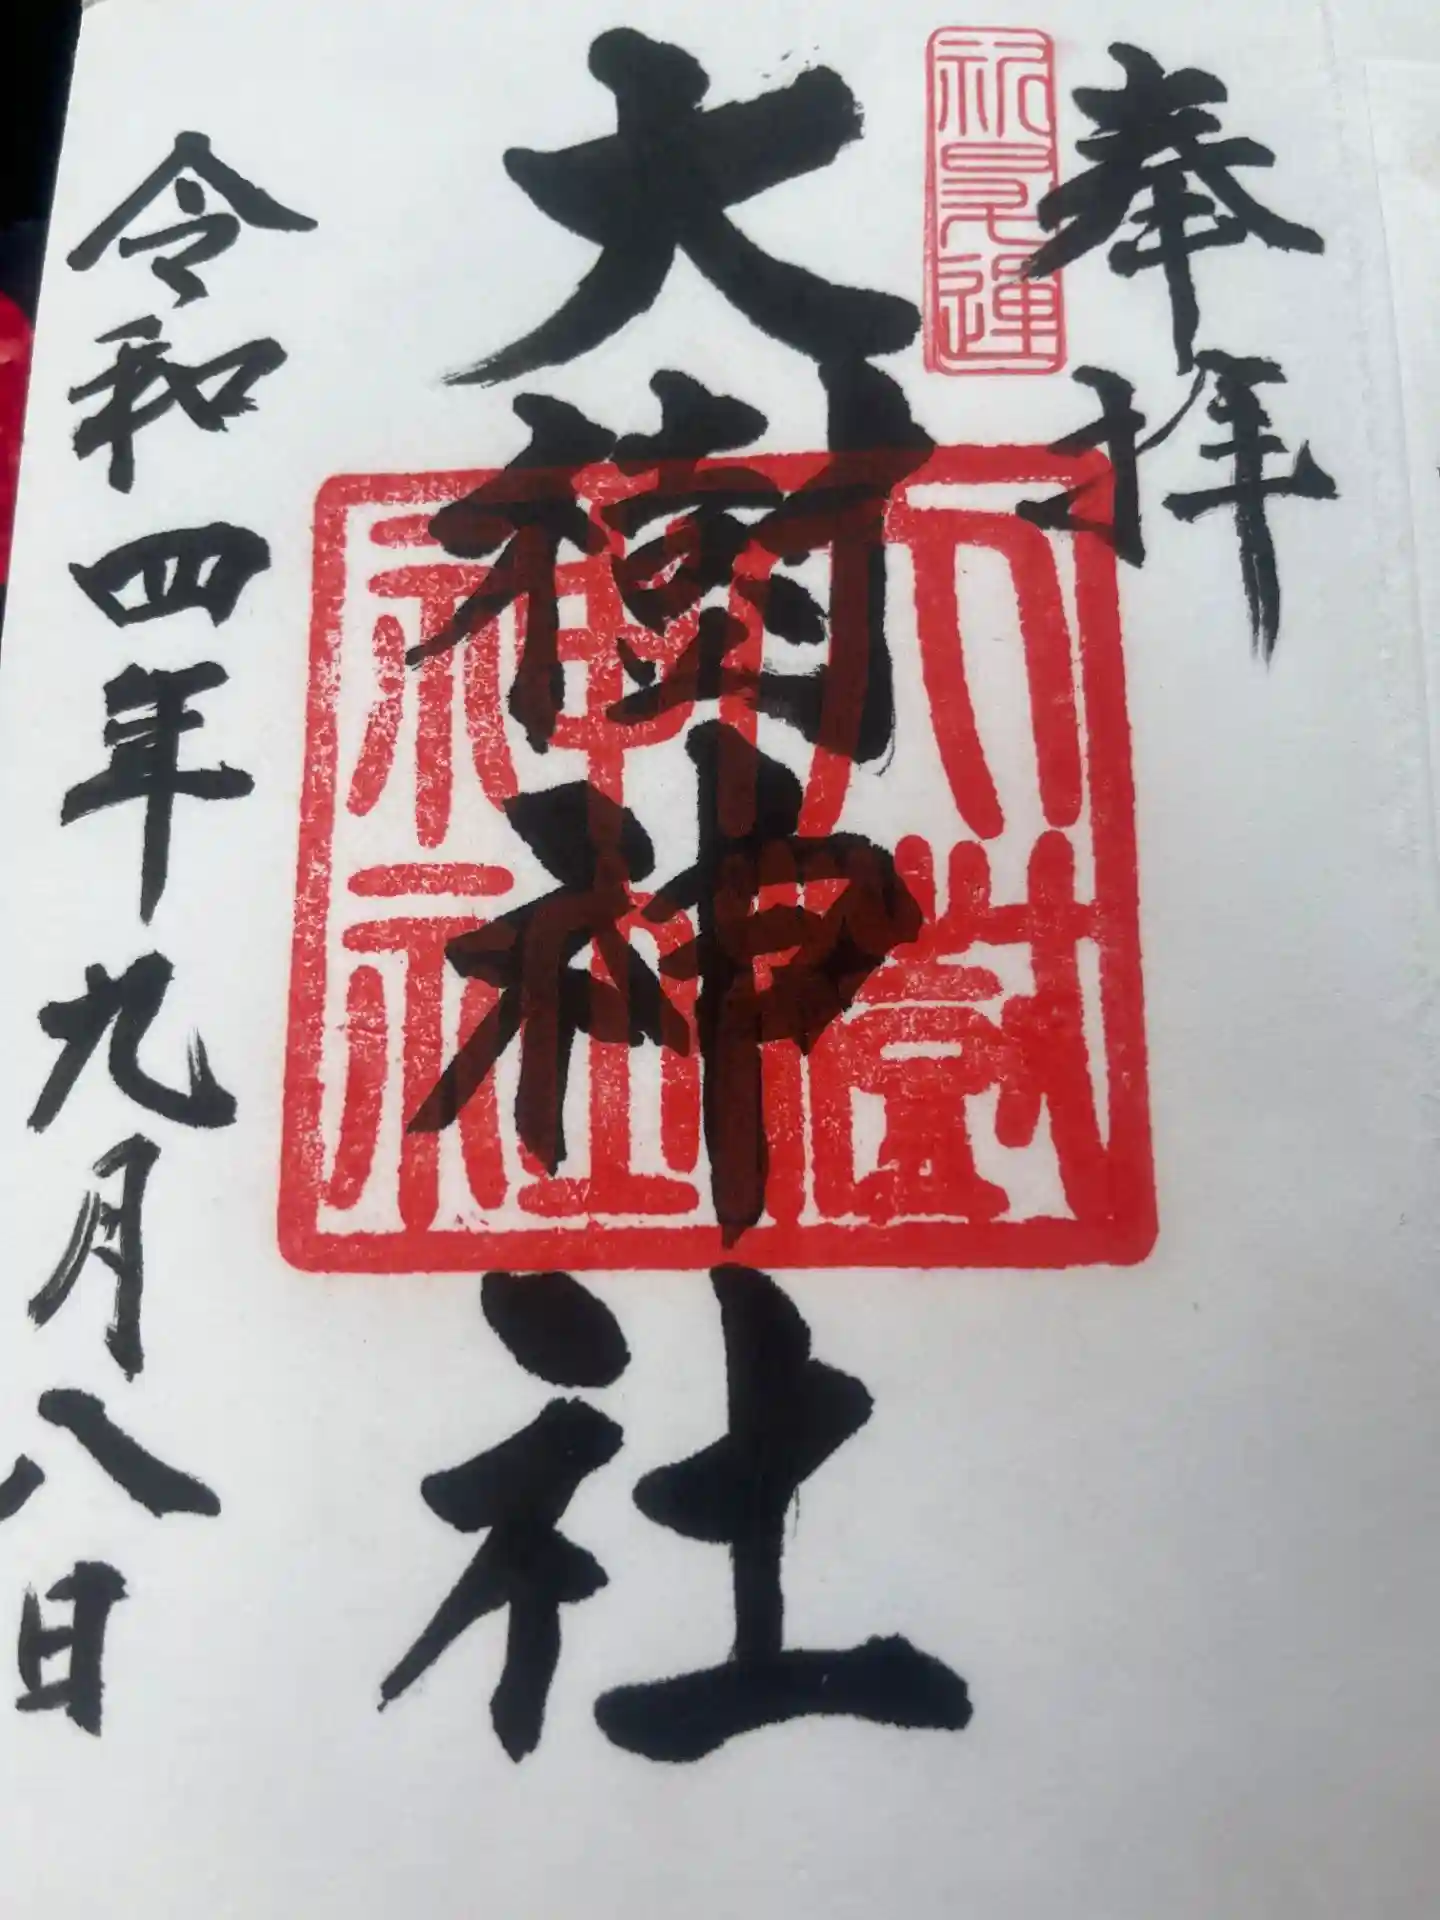 奉拝
祈昇運
大樹神社
大樹神社
令和四年九月八日